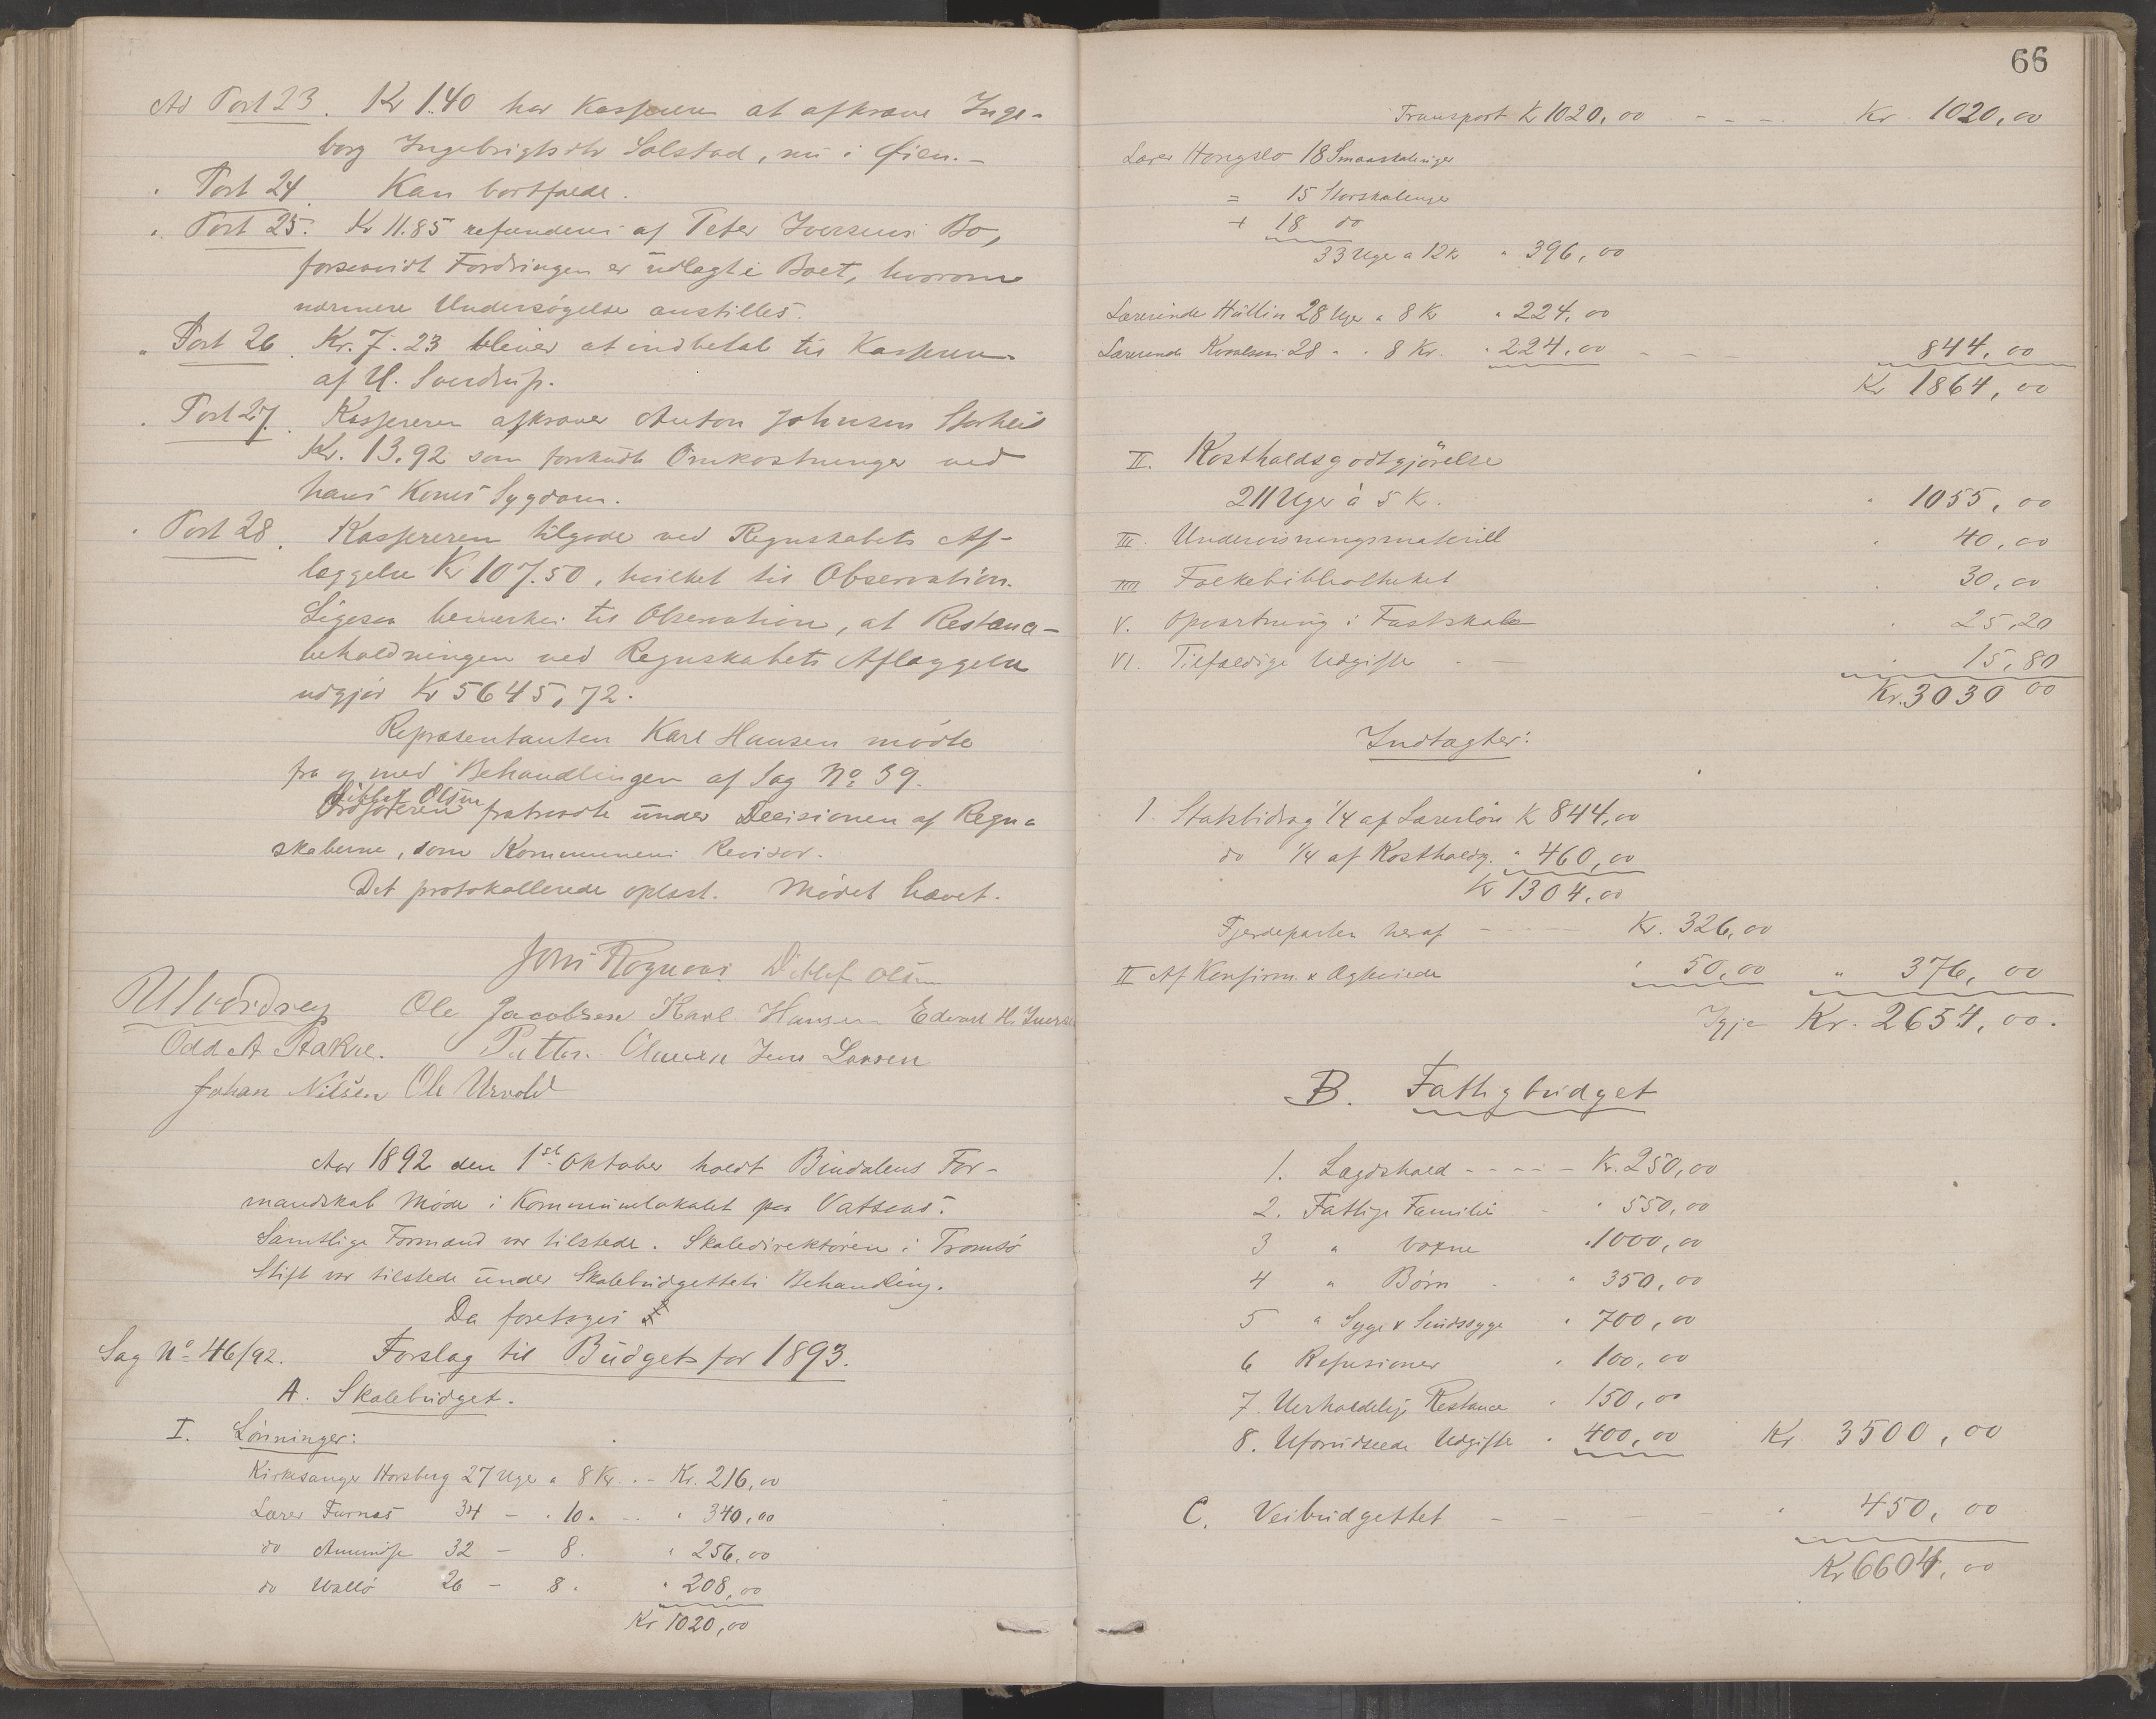 Ad Post 23. Kr 1.40 har Kassereren at afkræve Inge-
borg Ingebrigtsdtr Solstad, nu i Øien.-
" Post 24. Kan bortfalde.
" Post 25. Kr 11.85 refunderes af Peter Iversens Bo,
forsaavidt Fordringen er udlagt i Boet, hvorom
nærmere Undersögelse anstilles.
" Post 26. Kr. 7.23 bliver at indbetale til Kassereren
af U. Sverdrup.
" Post 27. Kassereren afkræver Anton Johnsen Storheil
Kr. 13.92 som forskudte Omkostninger ved
hans Kones Sygdom.
" Post 28. Kassereren tilgode ved Regnskabets Af-
læggelse Kr 107.50, hvilket til Observation.
Ligesaa bemerkes til Observation, at Restance-
beholdningen ved Regnskabets Aflæggelse
udgjør Kr 5645,72.
Repræsentanten Karl Hansen mødte
fra og med Behandlingen af Sag No 39.
Ditlef Olsen
Ordföreren fratraadte under Decisionen af Regn-
skaberne, som Kommunens Revisor.
Det protokollerede oplæst. Mødet hævet.
Jons Rognaas Ditlef Olsen
Ole Jacobsen Karl Hansen Edvart H. Iversen
Odd A Aakre. Petter Olausen Jens Larsen
Johan Nilsen Ole Urvold
Aar 1892 den 1st Oktober holdt Bindalens For-
mandskab Møde i Kommunelokalet paa Vatsaas.
Samtlige Formænd var tilstede. Skoledirektøren i Tromsö
Stift var tilstede under Skolebudgettets Behandling.
Da foretoges
Sag No 46/92. Forslag til Budgets for 1893.
A. Skolebudget.
I. Lønninger:
Kirkesanger Horsberg 27 Uger a 8 Kr. - Kr. 216,00
Lærer Furnæs 34 - " 10 " - " 340,00
do 32 - 8 " " 256,00
do Vallö 26 - 8 " " 208,00
Kr 1020,00
66
Transport Kr 1020,00 - - - Kr. 1020,00
Lærer Hongslo 18 Smaaskoleuger
= 15 Storskoleuger
+ 18 do
33 Uger a 12 Kr " 396,00
Lærerinde Hüllin 28 Uger a 8 Kr " 224,00
Lærerinde 28 " " 8 Kr. " 224,00 - - 844,00
Kr 1864,00
II. Kostholdsgodtgjörelse
211 Uger à 5 Kr. " 1055,00
III. Undervisningsmateriell " 40,00
IIII. Folkebibliotheket " 30,00
V. Opvartning i Fastskole " 25,20
VI. Tilfældige Udgifter - - " 15,80
Kr. 3030 00
Indtægter:
1. Statsbidrag 1/4 af Lærerløn Kr 844,00
do 1/4 af Kostholdg. " 460,00
Kr 1304,00
Fjerdeparten heraf - - - - Kr. 326,00
II Af Konfirm. & Ægteviede " 50,00 " 376,00
Igjen Kr. 2654,00.
B. Fattigbudget
1. Lægdshold - - - - Kr. 250,00
2. Fattige Familier - " 550,00
3 " voxne " 1000,00
4 " Børn - " 350,00
5 " Syge & Sindssyge " 700,00
6 Refusioner " 100,00
7. Uerholdelige Restancer " 150,00
8. Uforudseede Udgifter " 400,00 Kr. 3500,00
C. Veibudgettet - - - - " 450,00
Kr 6604,00